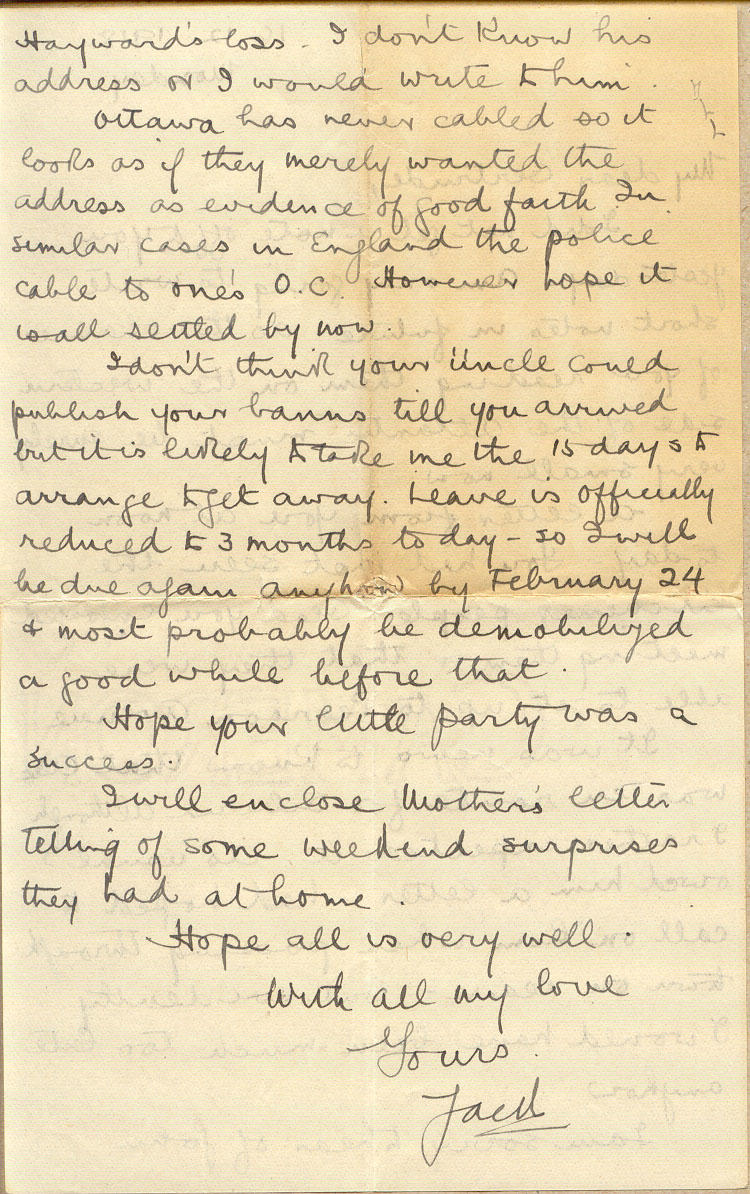 Hayward's loss. I don't know his
address or I would write to him.
Ottawa has never cabled so it
looks as if they merely wanted the
address as evidence of good faith. In
similar cases in England the police
cable to one's O.C. However hope it
is all settled by now.
I don't think your Uncle could
publish your banns till you arrived
but it is likely to take me the 15 days to
arrange to get away. Leave is officially
reduced to 3 months to day - so I will
be due again anyhow by February 24
& most probably be demobilized
a good while before that.
Hope your little party was a
success.
I will enclose Mother's letter
telling of some weekend surprises
they had at home.
Hope all is very well.
With all my love
Yours.
Jack